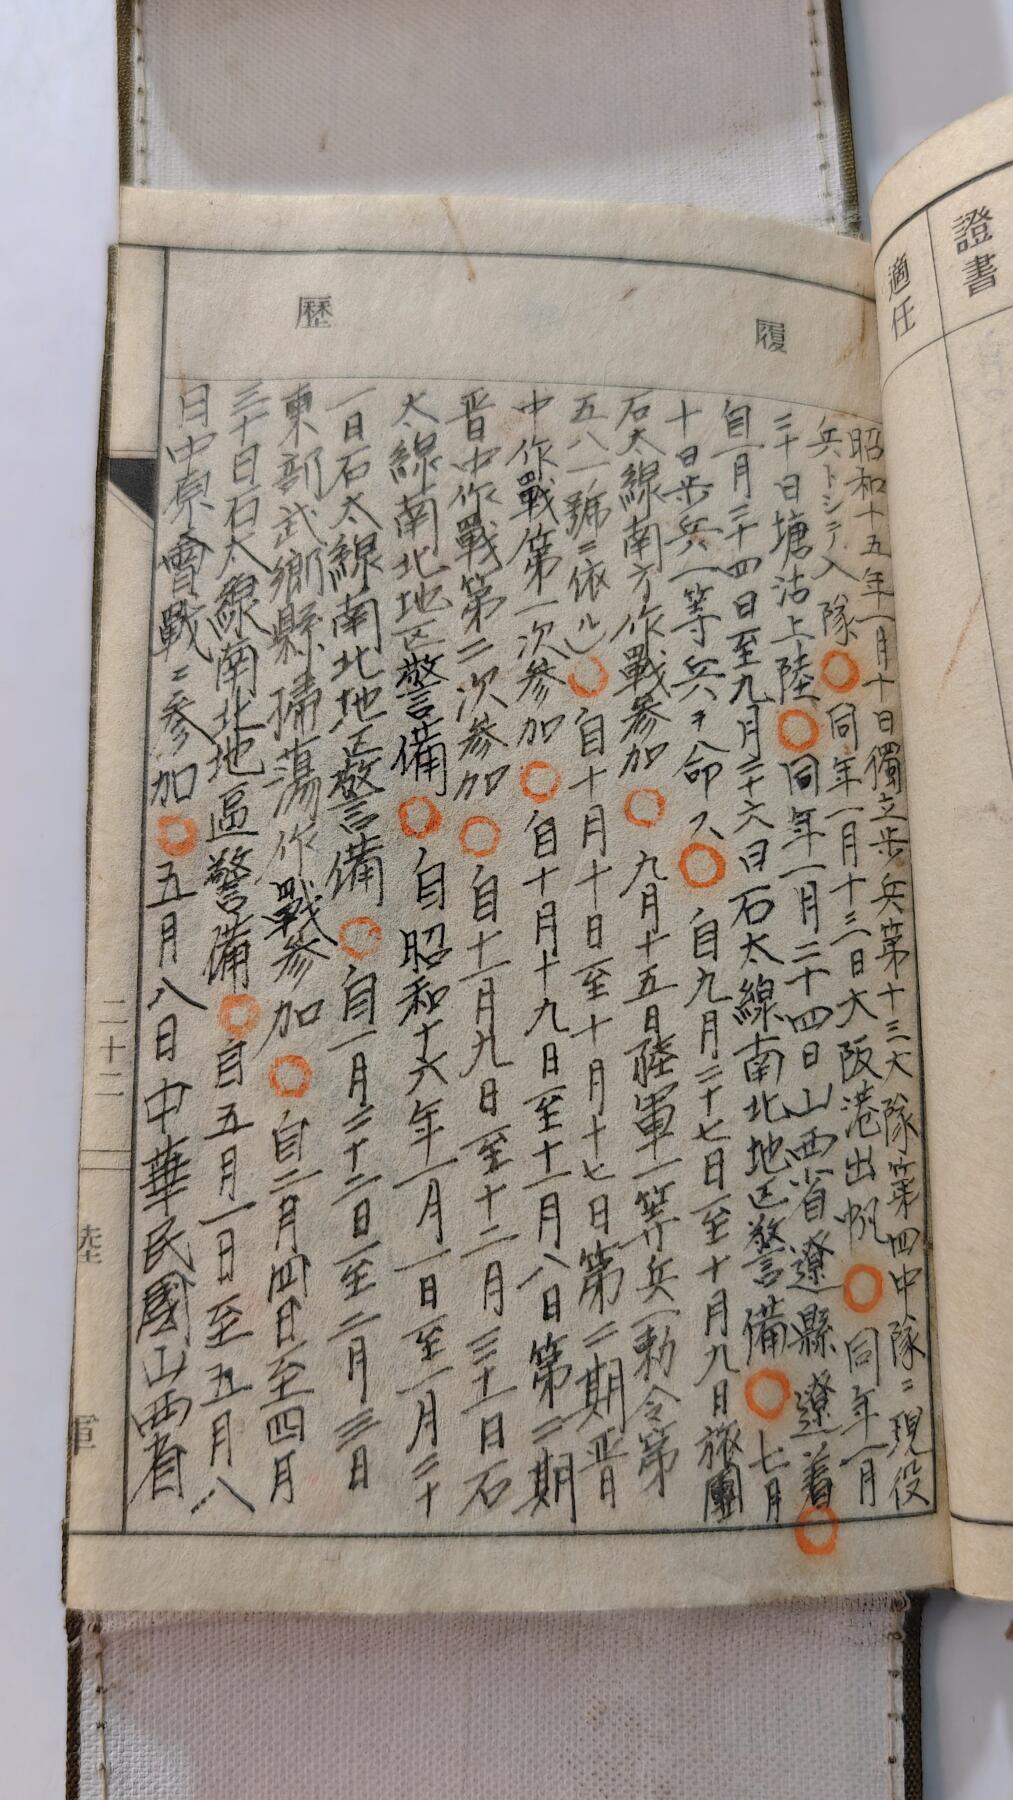 證書
適任
履歷
昭和十五年一月十日獨立歩兵第十三大隊第四中隊ニ現役
兵トシテ入隊〇同年一月十三日大阪港出帆〇同年一月
三十日塘沽上陸〇同年一月二十四日山西省遼縣遼着〇
自一月二十四日至九月二十六日石太線南北地区警備〇七月
十日歩兵一等兵ヲ命ス〇自九月二十七日至十月九日旅團
石太線南方作戰参加〇九月十五日陸軍一等兵(勅令第
五八一號ニ依ル)〇自十月十日至十月十七日第二期晋
中作戰第一次参加〇自十月十九日至十一月八日第二期
晋中作戰第二次参加〇自十一月九日至十二月三十一日石
太線南北地区警備〇自昭和十六年一月一日至一月二十
一日石太線南北地区警備〇自一月二十二日至二月三日
東部武鄉縣掃蕩作戰参加〇自二月四日至四月
三十日石太線南北地區警備〇自五月一日至五月八
日中原會戰ニ参加〇五月八日中華民國山西省
二十二
陸軍